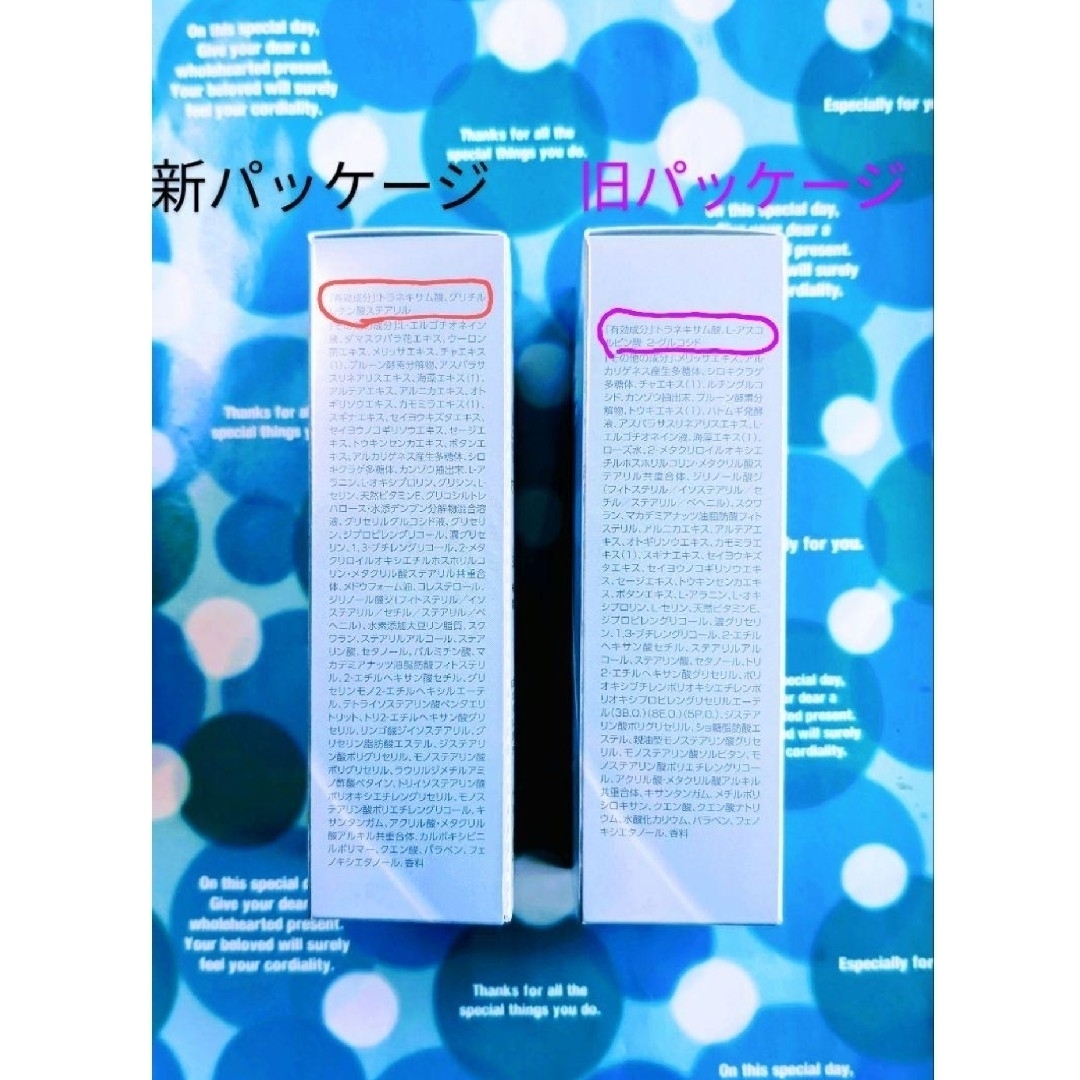 On this special day,
Give your dear a
wholehearted present.
Your beloved will surely
feel your cordiality.
Thanks for all the
special things you do.
Especially for
新パッケージ
旧パッケージ
「有効成分」トラネキサム酸、グリチル
ステアリル
L-エルゴチオネイン
液、ダマスクバラ花エキス、ウーロン
茶エキス、メリッサエキス、チャエキス
(1)、プルーン酵素分解物、アスパラサ
スリネアリスエキス、海藻エキス(1)、
アルテアエキス、アルニカエキス、オト
ギリソウエキス、カモミラエキス(1)、
スギナエキス、セイヨウキズタエキス、
セイヨウノコギリソウエキス、セージエ
キス、トウキンセンカエキス、ボタンエ
キス、アルカリゲネス産生多糖体、シロ
キクラゲ多糖体、カンゾウ抽出末、L-ア
ラニン、L-オキシプロリン、グリシン、L-
セリン、天然ビタミンE、グリコシルトレ
ハロース・水添デンプン分解物混合溶
液、グリセリルグルコシド液、グリセリ
ン、ジプロピレングリコール、濃グリセ
リン、1,3-ブチレングリコール、2-メタ
クリロイルオキシエチルホスホリルコ
リン・メタクリル酸ステアリル共重合
体、メドウフォーム油、コレステロール、
ジリノール酸ジ(フィトステリル/イソ
ステアリル/セチル/ステアリル/ベ
ヘニル)、水素添加大豆リン脂質、スク
ワラン、ステアリルアルコール、ステア
リン酸、セタノール、パルミチン酸、マ
カデミアナッツ油脂肪酸フィトステリ
ル、2-エチルヘキサン酸セチル、グリ
セリンモノ2-エチルヘキシルエーテ
ル、テトライソステアリン酸ペンタエリ
トリット、トリ2-エチルヘキサン酸グリ
セリル、リンゴ酸ジイソステアリル、グ
リセリン脂肪酸エステル、ジステアリ
ン酸ポリグリセリル、モノステアリン酸
ポリグリセリル、ラウリルジメチルアミ
ノ酢酸ベタイン、トリイソステアリン酸
ポリオキシエチレングリセリル、モノス
テアリン酸ポリエチレングリコール、キ
サンタンガム、アクリル酸・メタクリル
酸アルキル共重合体、カルボキシビニ
ルポリマー、クエン酸、パラベン、フェ
ノキシエタノール、香料
「有効成分」トラネキサム酸、L-アスコ
ルビン酸 2-グルコシド
「その他の成分」メリッサエキス、アル
カリゲネス産生多糖体、シロキクラゲ
多糖体、チャエキス(1)、ルチングルコ
シド、カンゾウ抽出末、プルーン酵素分
解物、トウキエキス(1)、ハトムギ発酵
液、アスパラサスリネアリスエキス、L-
エルゴチオネイン液、海藻エキス(1)、
ローズ水、2-メタクリロイルオキシエ
チルホスホリルコリン・メタクリル酸ス
テアリル共重合体、ジリノール酸ジ
(フィトステリル/イソステアリル/セ
チル/ステアリル/ベヘニル)、スクワ
ラン、マカデミアナッツ油脂肪酸フィト
ステリル、アルニカエキス、アルテアエ
キス、オトギリソウエキス、カモミラエ
キス(1)、スギナエキス、セイヨウキズ
タエキス、セイヨウノコギリソウエキ
ス、セージエキス、トウキンセンカエキ
ス、ボタンエキス、L-アラニン、L-オキ
シプロリン、L-セリン、天然ビタミンE、
ジプロピレングリコール、濃グリセリ
ン、1,3-ブチレングリコール、2-エチル
ヘキサン酸セチル、ステアリルアル
コール、ステアリン酸、セタノール、トリ
2-エチルヘキサン酸グリセリル、ポリ
オキシブチレンポリオキシエチレンポ
リオキシプロピレングリセリルエーテ
ル(3B.O.)(8E.O.)(5P.O.)、ジステア
リン酸ポリグリセリル、ショ糖脂肪酸エ
ステル、親油型モノステアリン酸グリセ
リル、モノステアリン酸ソルビタン、モ
ノステアリン酸ポリエチレングリコー
ル、アクリル酸・メタクリル酸アルキル
共重合体、キサンタンガム、メチルポリ
シロキサン、クエン酸、クエン酸ナトリ
ウム、水酸化カリウム、パラベン、フェノ
キシエタノール、香料
on this special day,
dear a
present.
will surely
cordiality.
Thanks for
special things
for you.
special day,
dear a
present.
will surely
cordiality.
On this special
Give your dear
wholehearted present.
Your beloved will surely
feel your cordiality.
Thanks for all the
special things you do.
Especially for
On this special day,